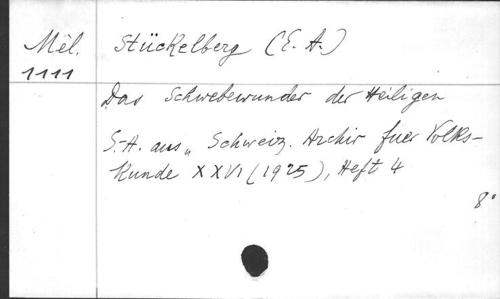 Mél. Stückelberg (E. A.)
1111
Das Schwebewunder der Heiligen
S.-A. aus „Schweiz. Archiv fuer Volks-
kunde XXVI (1925), Heft 4
8°